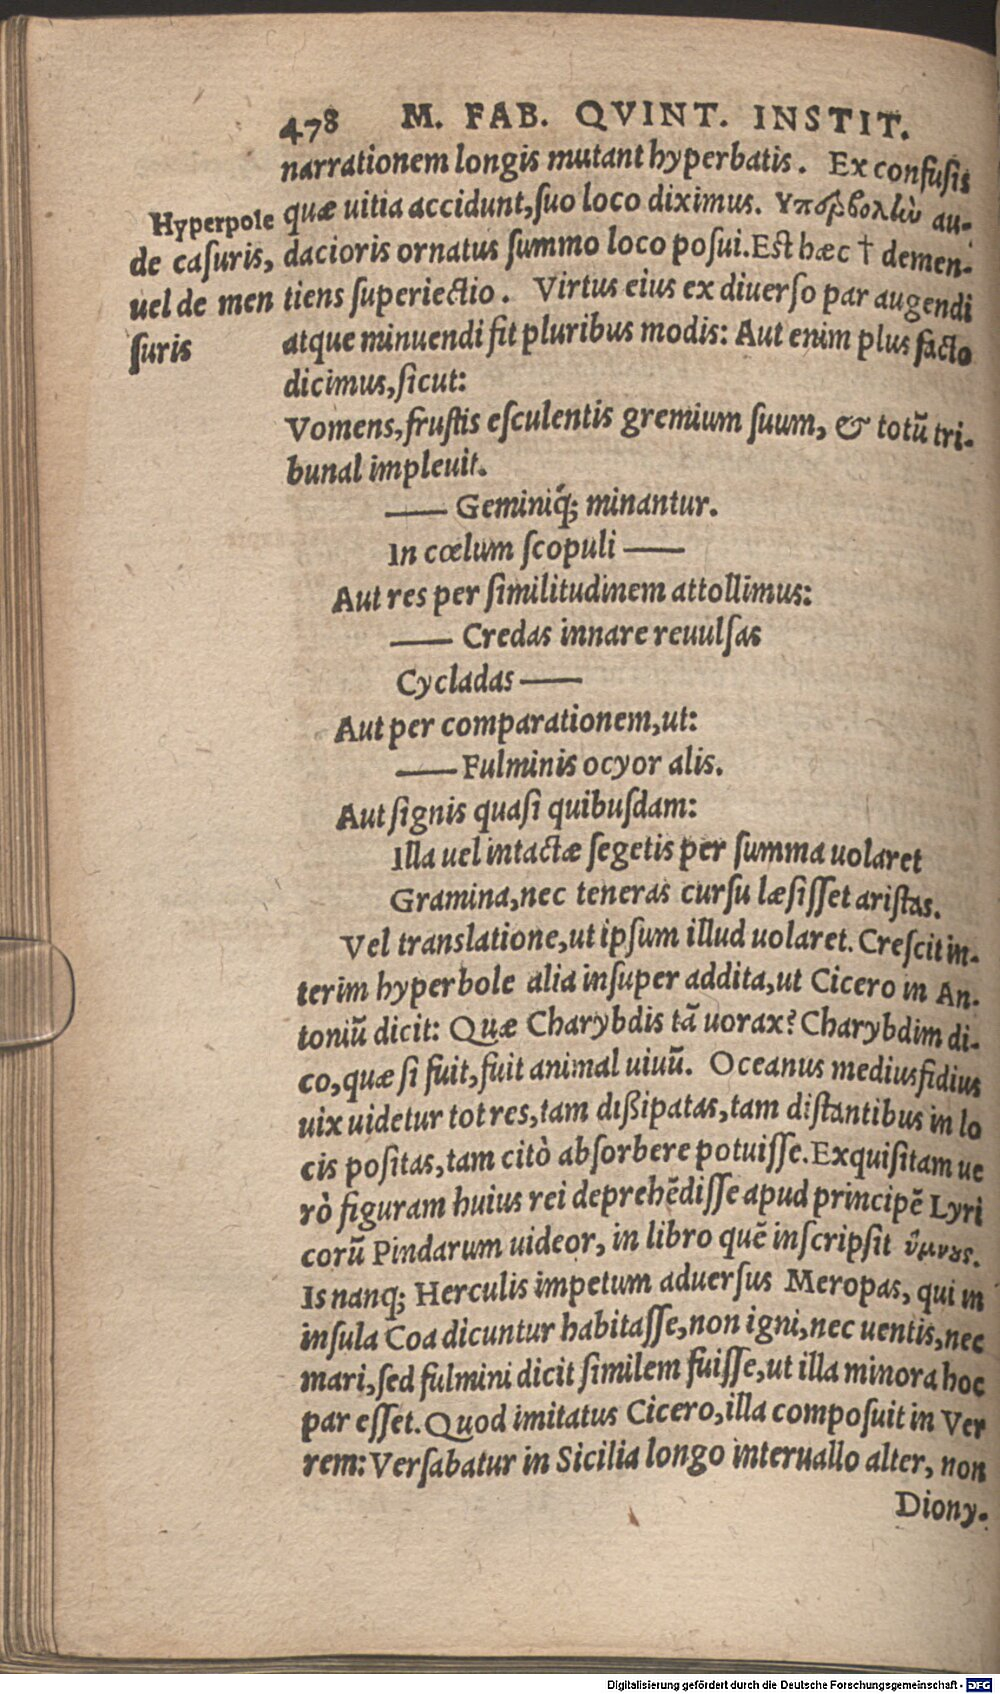 478 M. FAB. QVINT. INSTIT.
narrationem longis mutant hyperbatis. Ex confusis
quæ uitia accidunt, suo loco diximus. Ὑπερβολὴν au-
dacioris ornatus summo loco posui. Est hæc † demen-
tiens superiectio. Virtus eius ex diuerso par augendi
atque minuendi fit pluribus modis: Aut enim plus facto
dicimus, sicut:
Vomens, frustis esculentis gremium suum, & totũ tri-
bunal impleuit.
—— Geminiq́; minantur.
In cœlum scopuli ——
Aut res per similitudinem attollimus:
—— Credas innare reuulsas
Cycladas ——
Aut per comparationem, ut:
—— Fulminis ocyor alis.
Aut signis quasi quibusdam:
Illa uel intactæ segetis per summa uolaret
Gramina, nec teneras cursu læsisset aristas.
Vel translatione, ut ipsum illud uolaret. Crescit in-
terim hyperbole alia insuper addita, ut Cicero in An-
toniũ dicit: Quæ Charybdis tã uorax? Charybdim di-
co, quæ si fuit, fuit animal uiuũ. Oceanus mediusfidius
uix uidetur tot res, tam dißipatas, tam distantibus in lo
cis positas, tam citò absorbere potuisse. Exquisitam ue
rò figuram huius rei deprehẽdisse apud principẽ Lyri
corũ Pindarum uideor, in libro quẽ inscripsit ὕμνους.
Is nanq; Herculis impetum aduersus Meropas, qui in
insula Coa dicuntur habitasse, non igni, nec uentis, nec
mari, sed fulmini dicit similem fuisse, ut illa minora hoc
par esset. Quod imitatus Cicero, illa composuit in Ver
rem: Versabatur in Sicilia longo interuallo alter, non
Diony-
Hyperpole
de casuris,
uel de men
suris
Digitalisierung gefördert durch die Deutsche Forschungsgemeinschaft - DFG